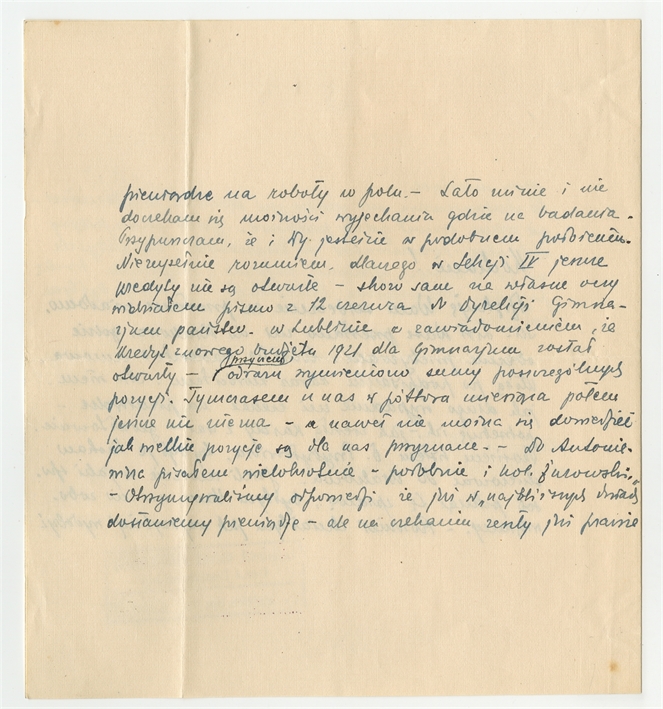 pieniądze na roboty w polu. – Lato minie i nie
doczekam się możności wyjechania gdzie na badania.
Przypuszczam, że i Wy jesteście w podobnem położeniu.
Niezupełnie rozumiem, dlaczego w Sekcji IV jeszcze
kredyty nie są otwarte – skoro sam na własne oczy
widziałem pismo z 12 czerwca do Dyrekcji Gimna-
zjum państw. w Lublinie z zawiadomieniem, że
kredyt z nowego budżetu 1921 dla Gimnazjum został
otwarty – przyczem odrazu wymieniono sumy poszczególnych
pozycji. Tymczasem u nas w półtora miesiąca potem
jeszcze nic niema – a nawet nie można się dowiedzieć
jak wielkie pozycje są dla nas przyznane. – Do Antonie-
wicza pisałem wielokrotnie – podobnie i kol. Żurowski.
– Otrzymywaliśmy odpowiedzi że już w „najbliższych dniach”
dostaniemy pieniądze – ale na czekaniu zeszły już prawie